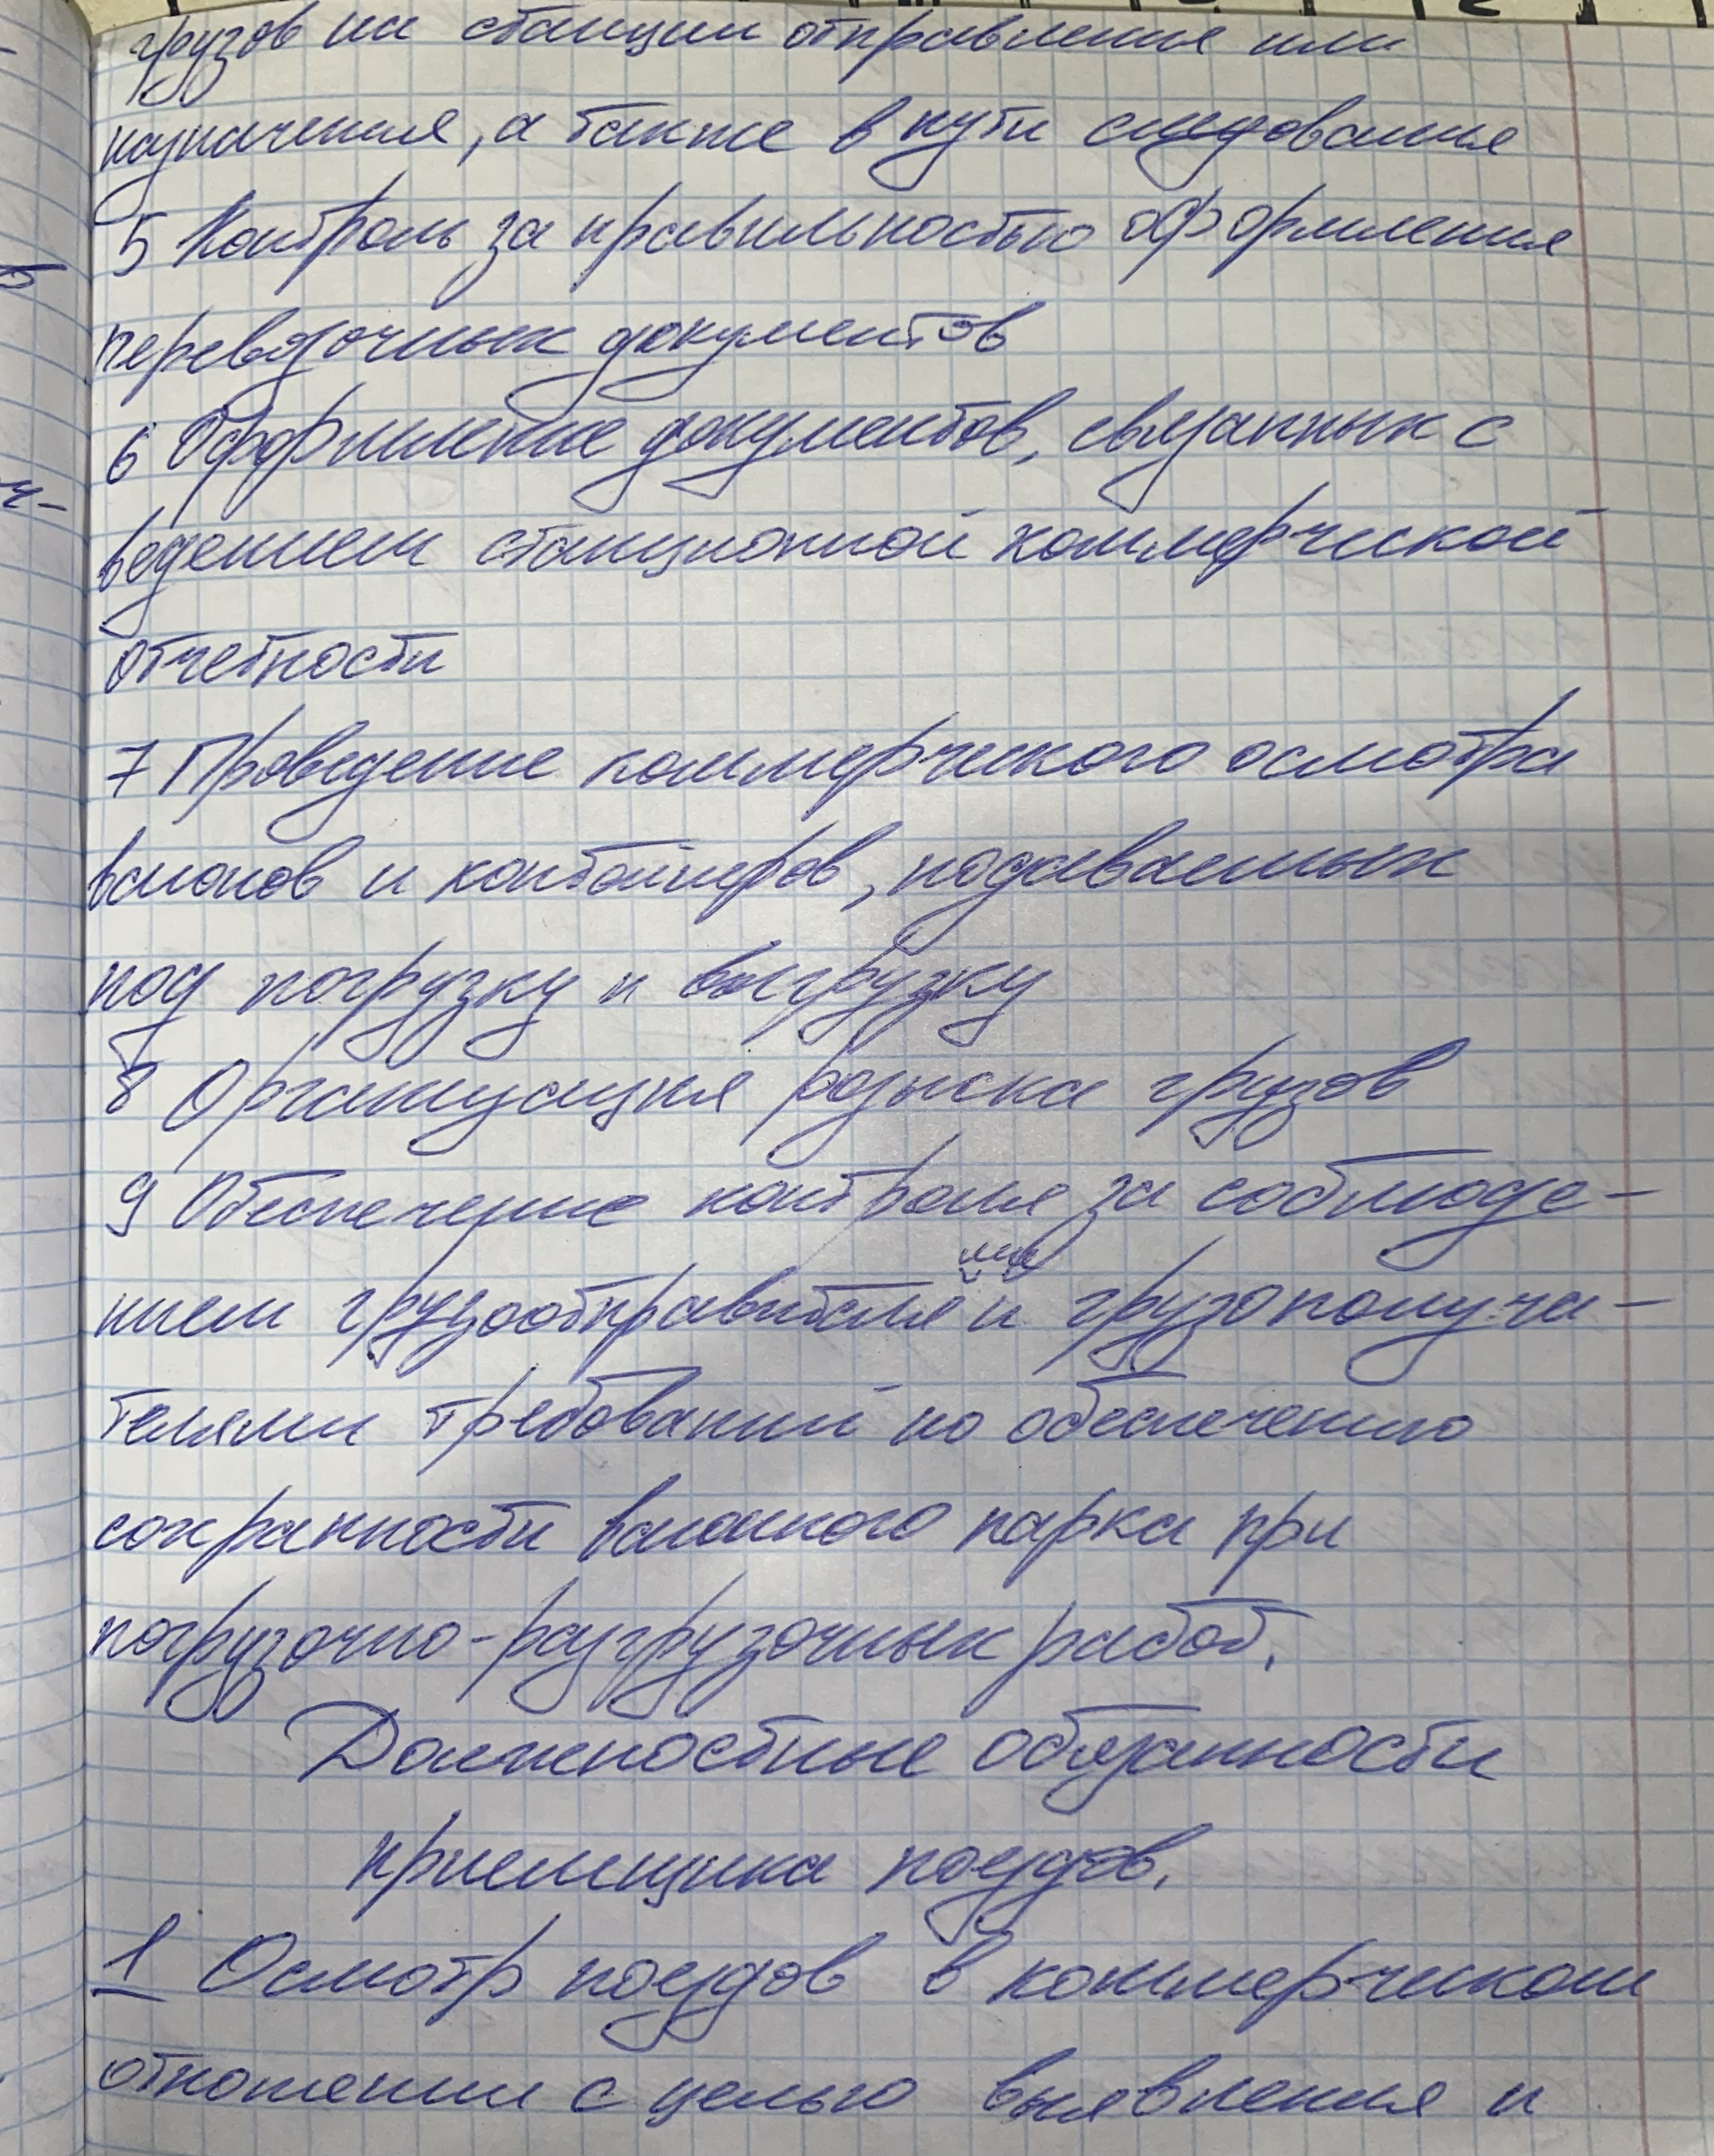 грузов на станции отправления или
назначения, а также в пути следования
5 Контроль за правильностью оформления
перевозочных документов
6 Оформление документов, связанных с
ведением станционной коммерческой
отчетности
7 Проведение коммерческого осмотра
вагонов и контейнеров, подаваемых
под погрузку и выгрузку
8 Организация розыска грузов
9 Обеспечение контроля за соблюде-
ми
нием грузоотправителя и грузополуча-
телями требований по обеспечению
сохранности вагонного парка при
погрузочно-разгрузочных работ.
Должностные обязанности
приемщика поездов.
1 Осмотр поездов в коммерческом
отношении с целью выявления и
ч-